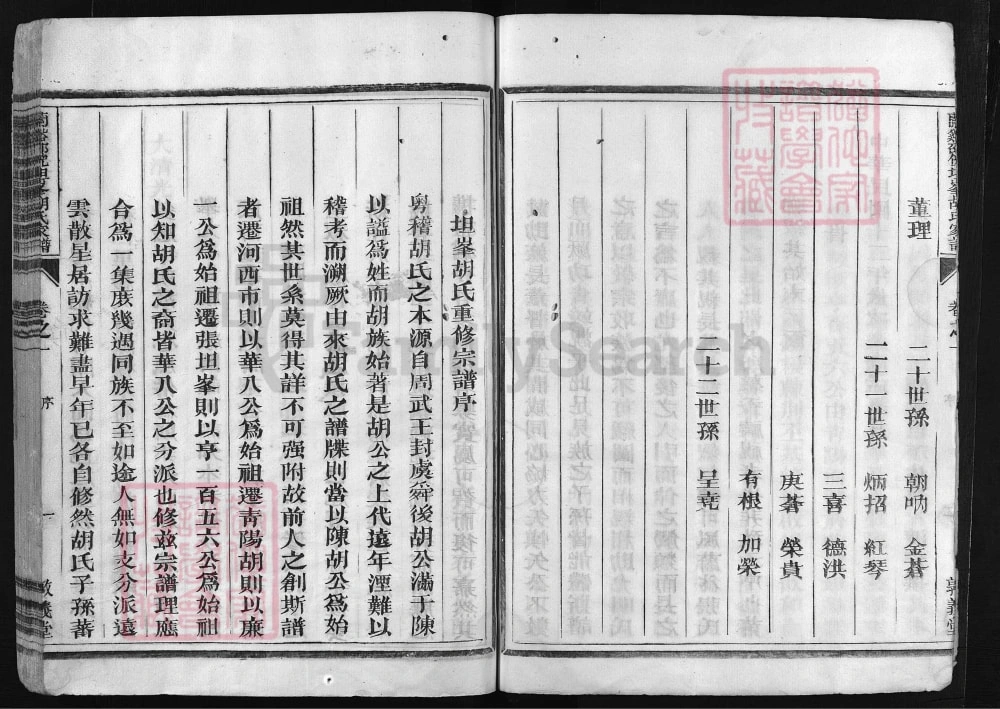 董理
二十世孫 朝吶 金蒼
二十一世孫 炳招 紅琴
三喜 德洪
庚蒼 榮貴
有根 加榮
二十二世孫 呈堯
坦峯胡氏重修宗譜序
粤稽胡氏之本源自周武王封虞舜後胡公滿于陳
以謚爲姓而胡族始著是胡公之上代遠年湮難以
稽考而溯厥由來胡氏之譜牒則當以陳胡公爲始
祖然其世系莫得其詳不可强附故前人之創斯譜
者遷河西市則以華八公爲始祖遷青陽胡則以廉
一公爲始祖遷張坦峯則以亨一百五六公爲始祖
以知胡氏之裔皆華八公之分派也修兹宗譜理應
合爲一集庶幾遇同族不至如途人無如支分派遠
雲散星居訪求難盡早年已各自修然胡氏子孫蕃
卷之一
序
一
敦義堂
FamilySearch